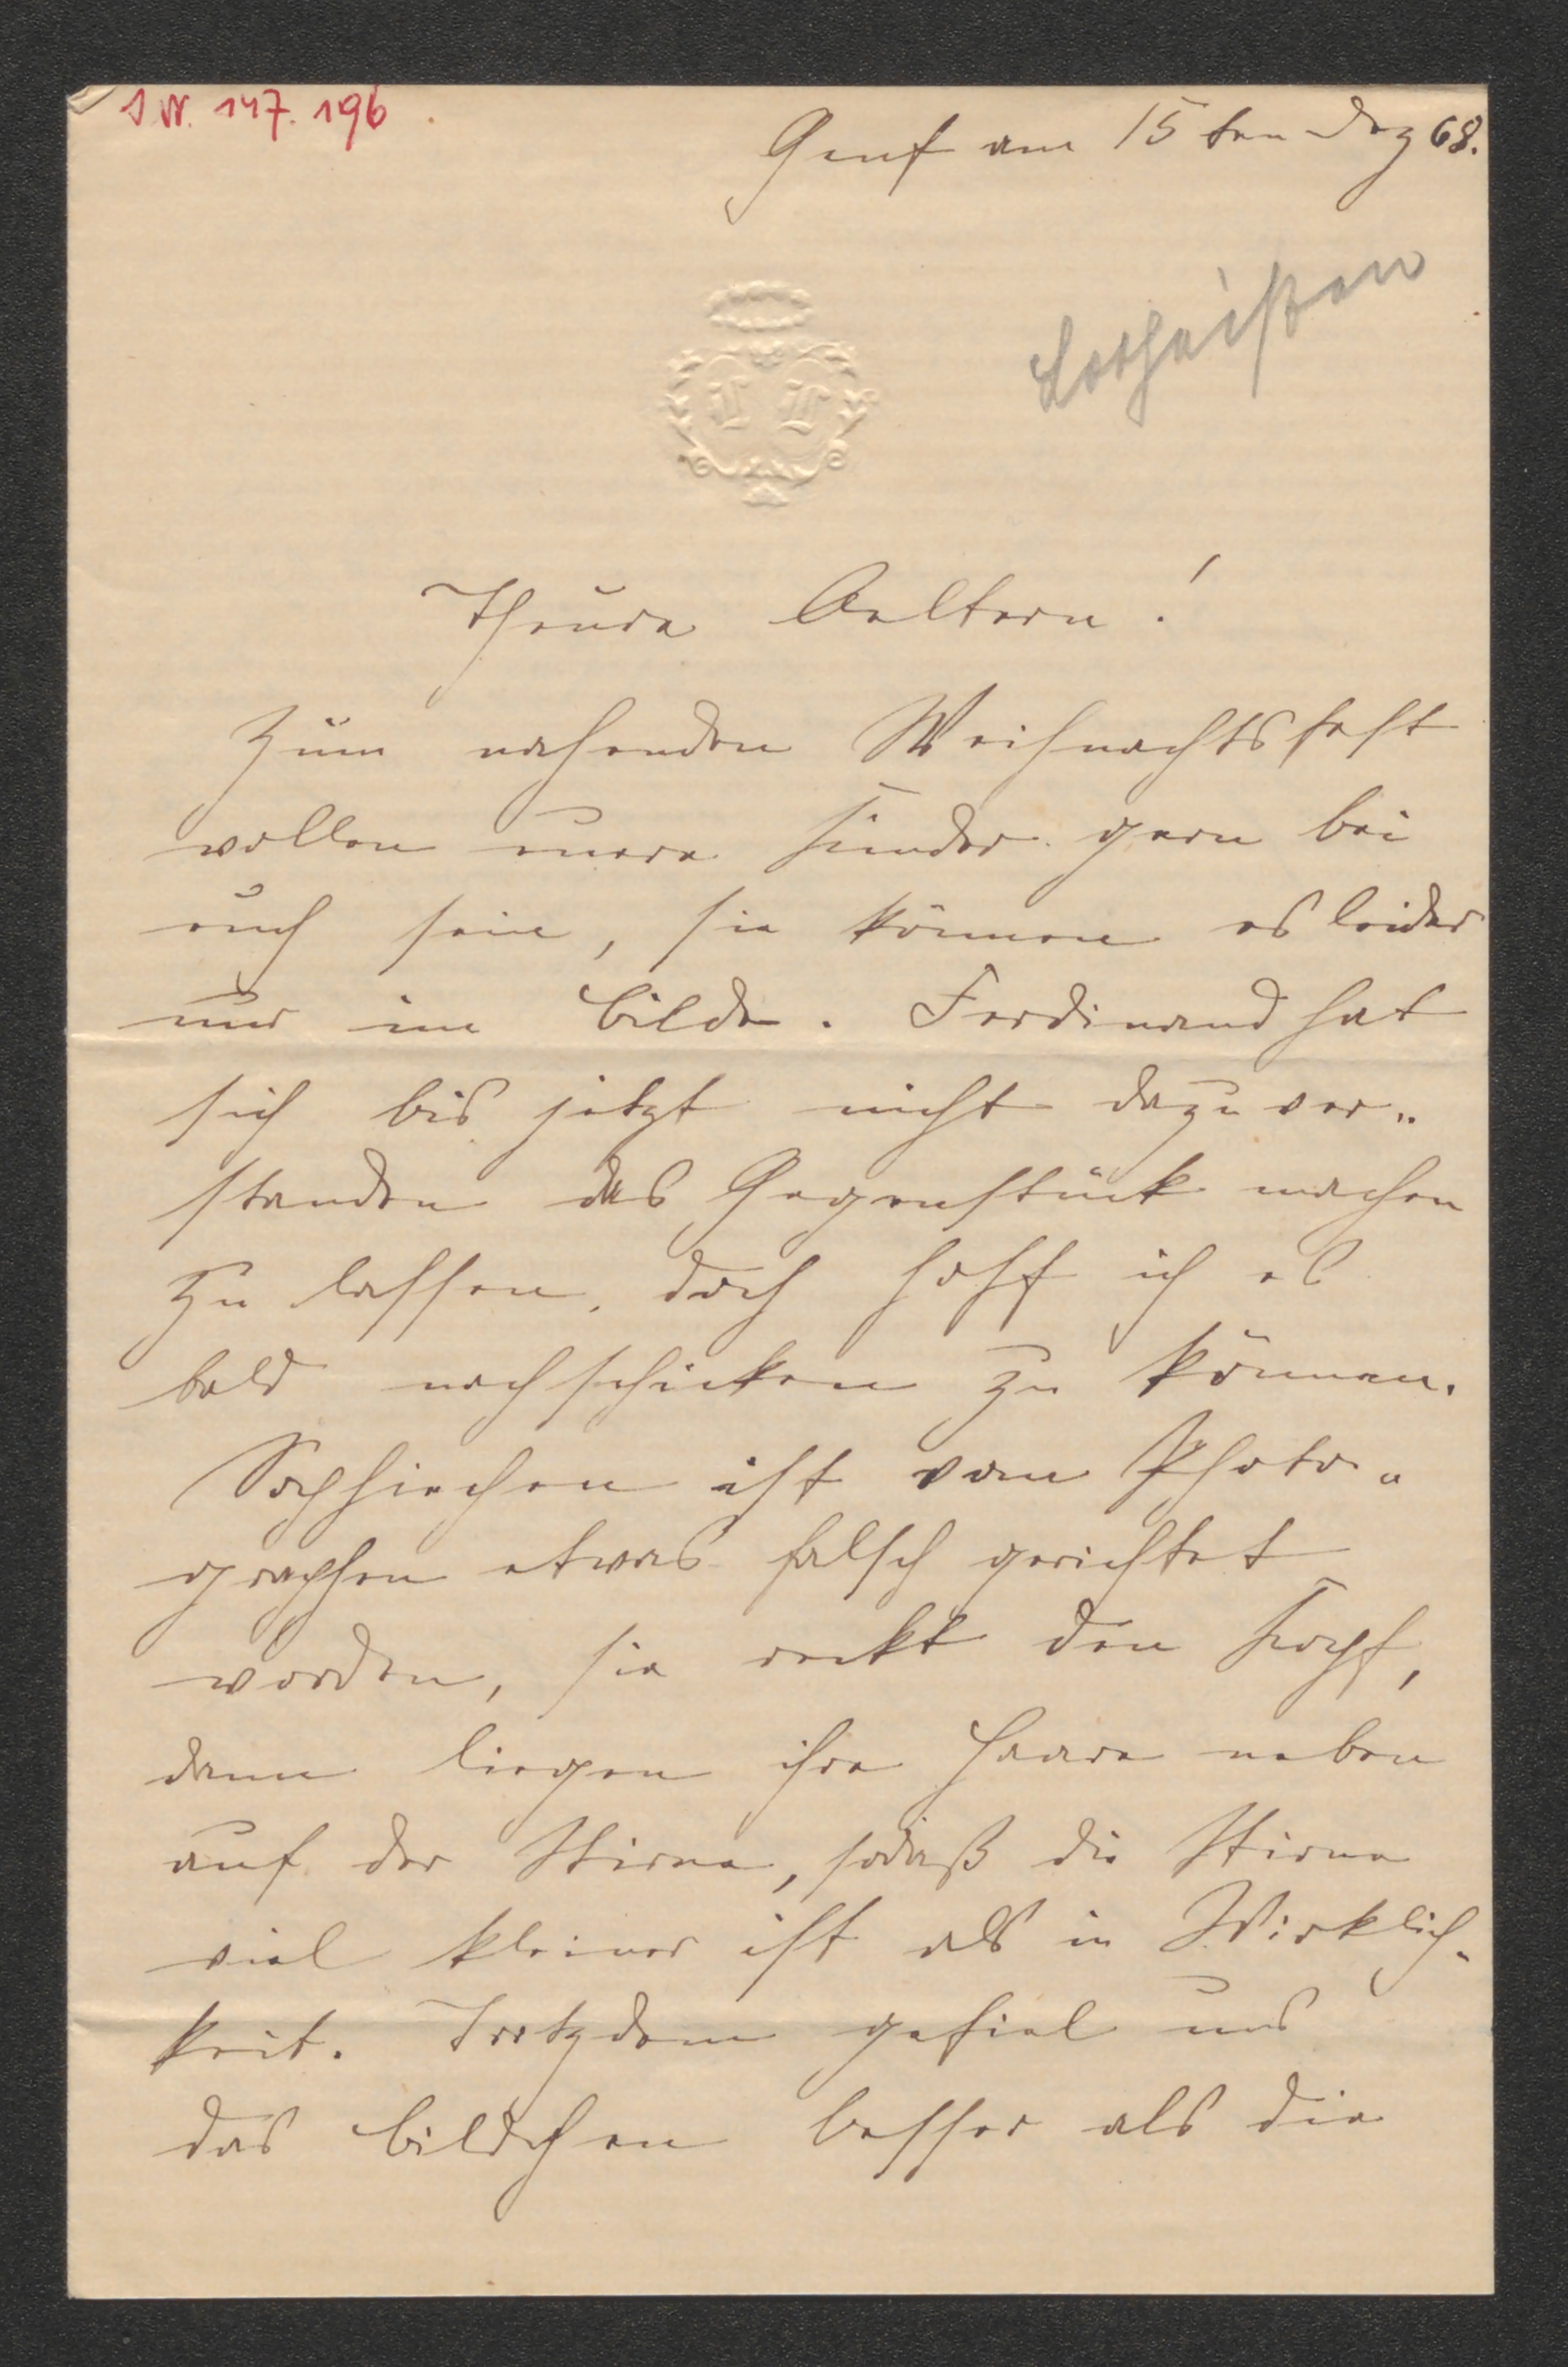 I.N. 147.196
Genf am 15ten Dez 68.
Lotheißen
L L
Theure Aeltern!
Zum nahenden Weihnachtsfest
wollen eure Kinder gern bei
euch sein, sie können es leider
nur im Bilde. Ferdinand hat
sich bis jetzt nicht dazu ver„
standen das Gegenstück machen
zu lassen, doch hoff ich es
bald nachschicken zu können.
Sophiechen ist vom Photo„
graphen etwas falsch gerichtet
worden, sie reckt den Kopf,
dann liegen ihre Haare neben
auf der Stirne, sodaß die Stirne
viel kleiner ist als in Wirklich„
keit. Trotzdem gefiel uns
das Bildchen besser als die